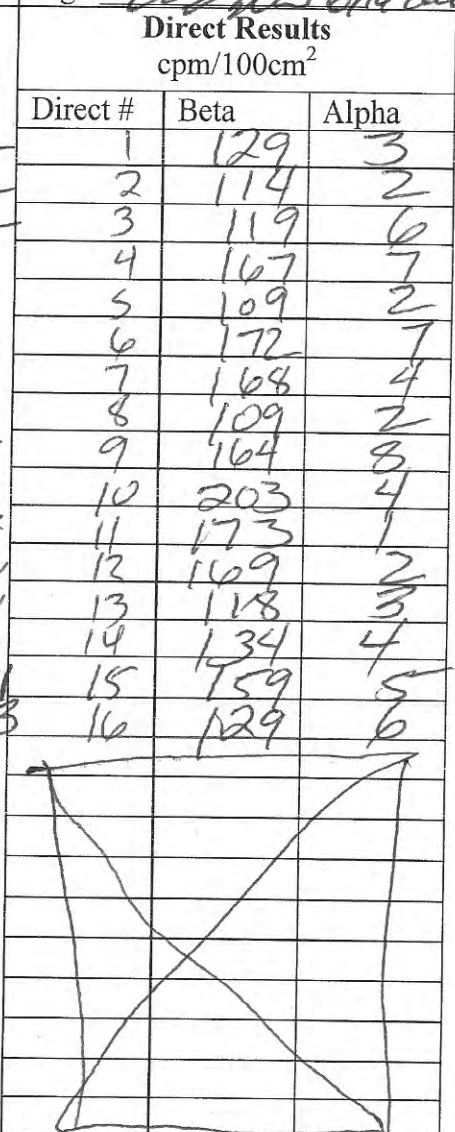 Direct Results
cpm/100cm²
Direct # Beta Alpha
1 129 3
2 114 2
3 119 6
4 167 7
5 109 2
6 172 7
7 168 4
8 109 2
9 164 8
10 203 4
11 173 1
12 169 2
13 118 3
14 134 4
15 159 5
16 129 6